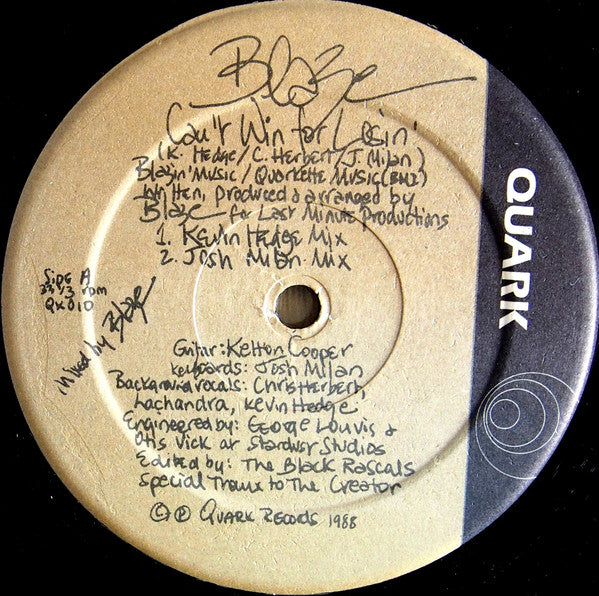 Blaze
Can't Win for Losin'
(K. Hedge/C. Herbert/J. Milan)
Blazin' Music/Quarkette Music (BMI)
Written, produced & arranged by
Blaze for Last Minute Productions
1. Kevin Hedge Mix
2. Josh Milan Mix
Side A
33 1/3 rpm
QK 010
Mixed by Blaze
QUARK
Guitar: Kelton Cooper
keyboards: Josh Milan
Background vocals: Chris Herbert,
Lachandra, Kevin Hedge
Engineered by: George Louvis &
Otis Vick at Stardust Studios
Edited by: The Black Rascals
Special Thanx to The Creator
© ℗ Quark Records 1988